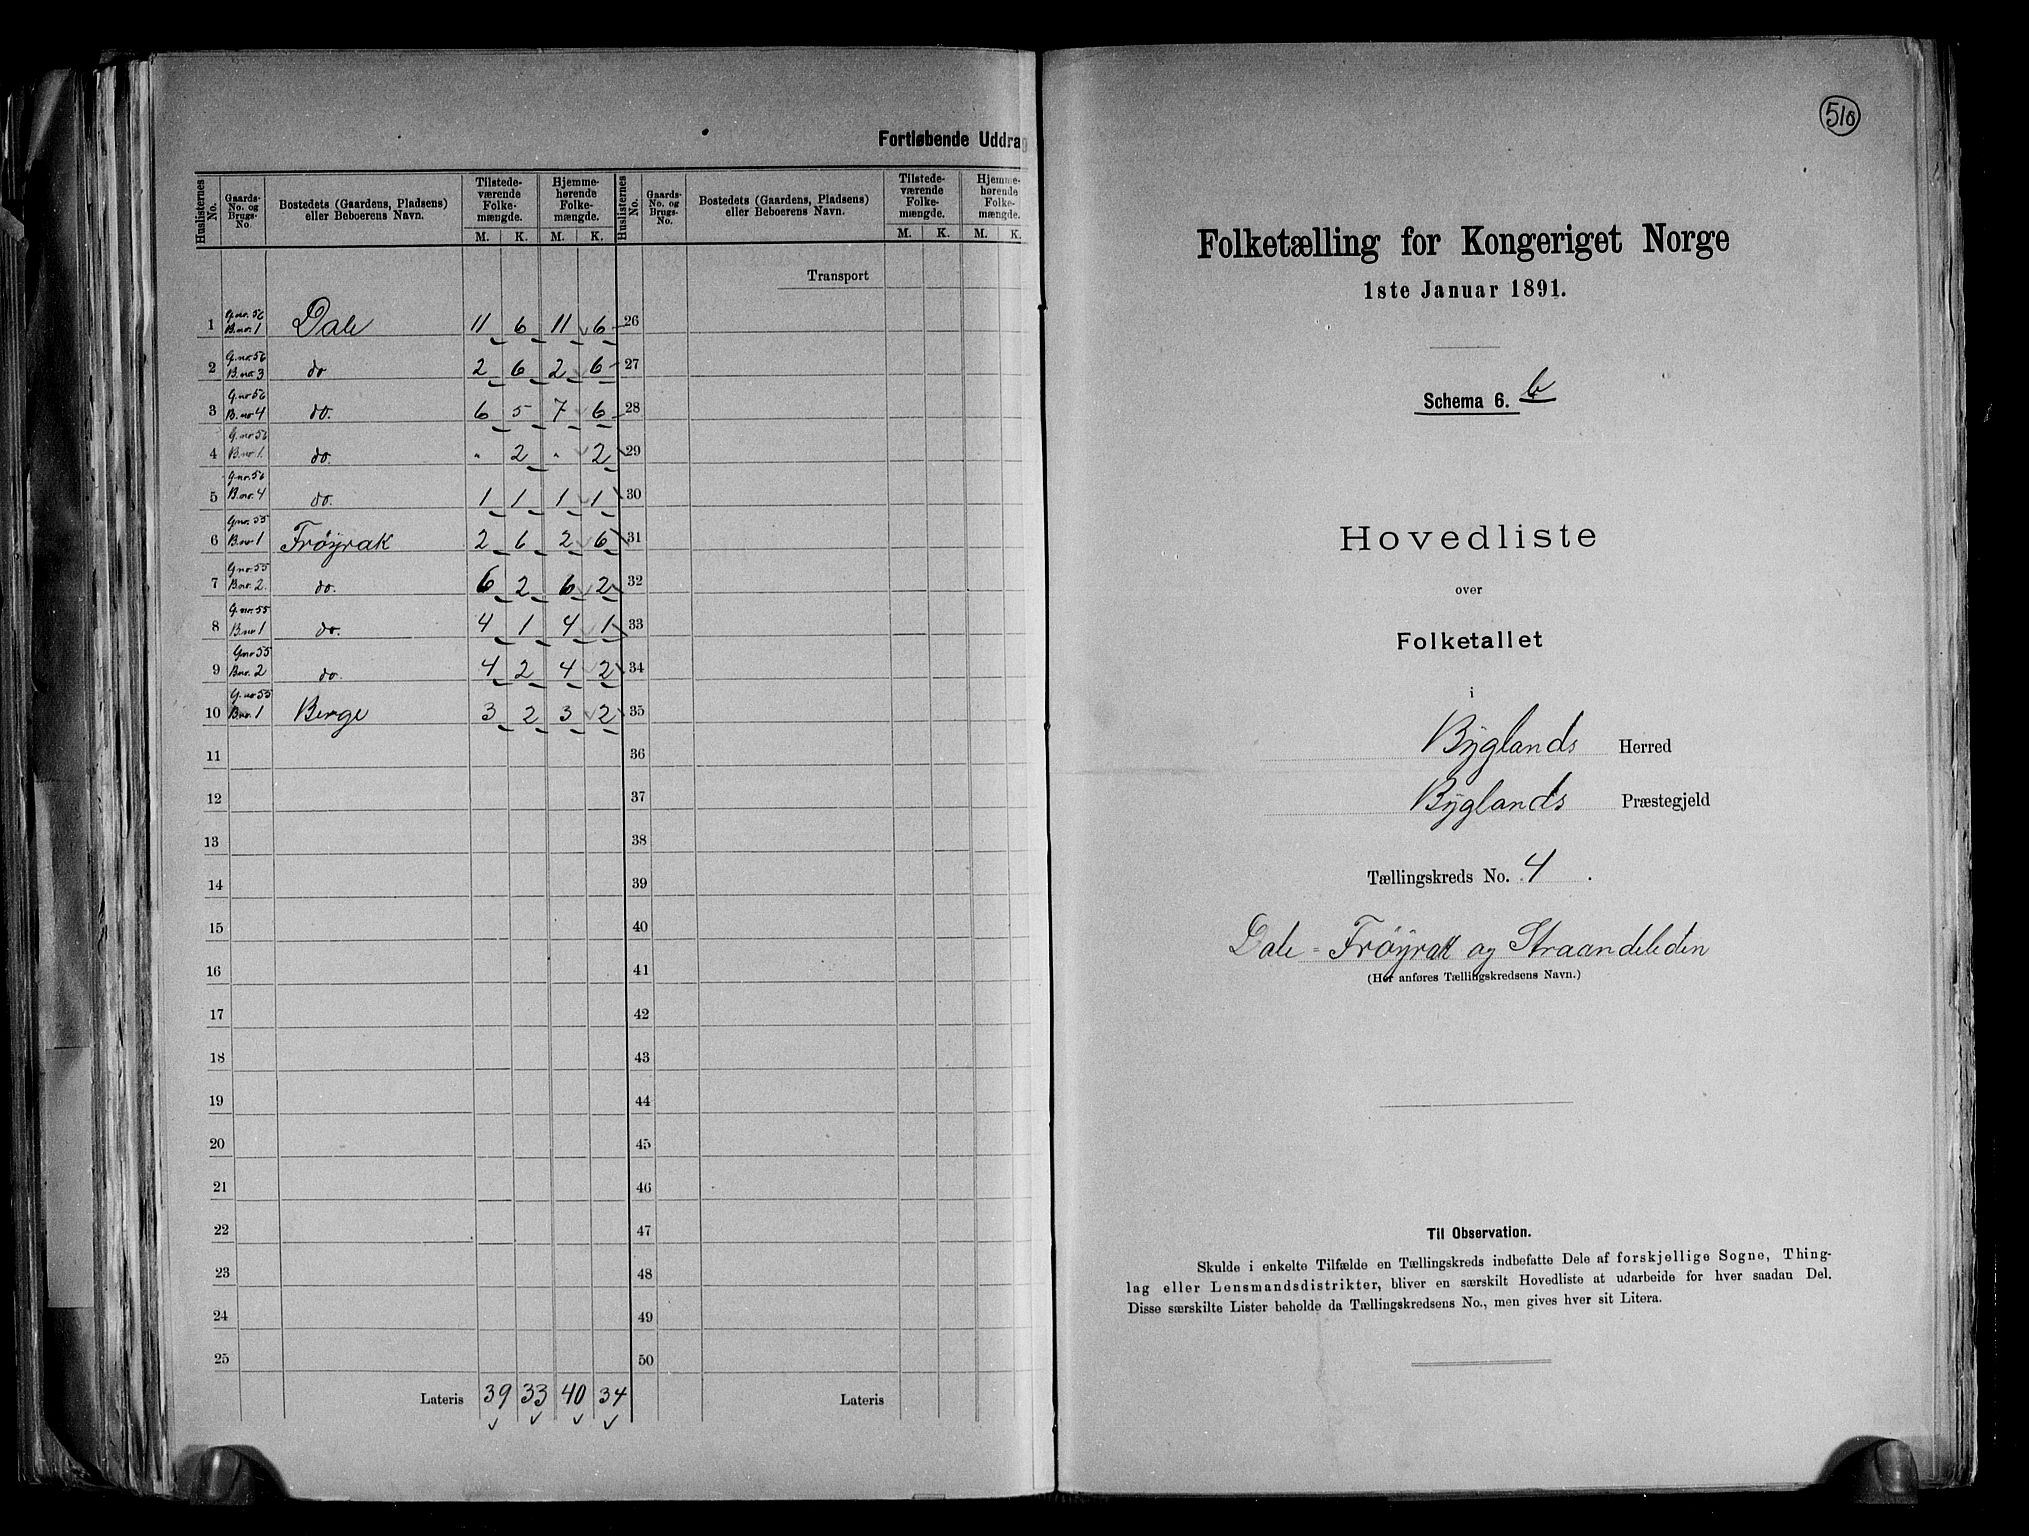 Fortløbende Uddrag
Huslisternes No. | Gaards-No. og Brugs-No. | Bostedets (Gaardens, Pladsens) eller Beboerens Navn. | Tilstedeværende Folkemængde. M. K. | Hjemmehørende Folkemængde. M. K. | Huslisternes No. | Gaards-No. og Brugs-No. | Bostedets (Gaardens, Pladsens) eller Beboerens Navn. | Tilstedeværende Folkemængde. M. K. | Hjemmehørende Folkemængde. M. K.
Transport
1 G.nr. 56 B.nr. 1 Dale 11 6 11 6 26
2 G.nr. 56 B.nr. 3 do 2 6 2 6 27
3 G.nr 56 B.nr 4 do. 6 5 7 6 28
4 G.nr 56 B.nr 1. do. " 2 " 2 29
5 G.nr. 56 B.nr. 4 do. 1 1 1 1 30
6 G.nr. 55 B.nr 1 Frøyrak 2 6 2 6 31
7 G.nr. 55 B.nr. 2. do. 6 2 6 2 32
8 G.nr. 55 B.nr 1 do. 4 1 4 1 33
9 G.nr 55 B.nr. 2 do. 4 2 4 2 34
10 G.nr 55 B.nr. 1 Berge 3 2 3 2 35
11 36
12 37
13 38
14 39
15 40
16 41
17 42
18 43
19 44
20 45
21 46
22 47
23 48
24 49
25 50
Lateris 39 33 40 34 Lateris
510
Folketælling for Kongeriget Norge
1ste Januar 1891.
Schema 6. b
Hovedliste
over
Folketallet
i
Byglands Herred
Byglands Præstegjeld
Tællingskreds No. 4.
Dale-Frøyrak og Straandeleden
(Her anføres Tællingskredsens Navn.)
Til Observation.
Skulde i enkelte Tilfælde en Tællingskreds indbefatte Dele af forskjellige Sogne, Thing-
lag eller Lensmandsdistrikter, bliver en særskilt Hovedliste at udarbeide for hver saadan Del.
Disse særskilte Lister beholde da Tællingskredsens No., men gives hver sit Litera.